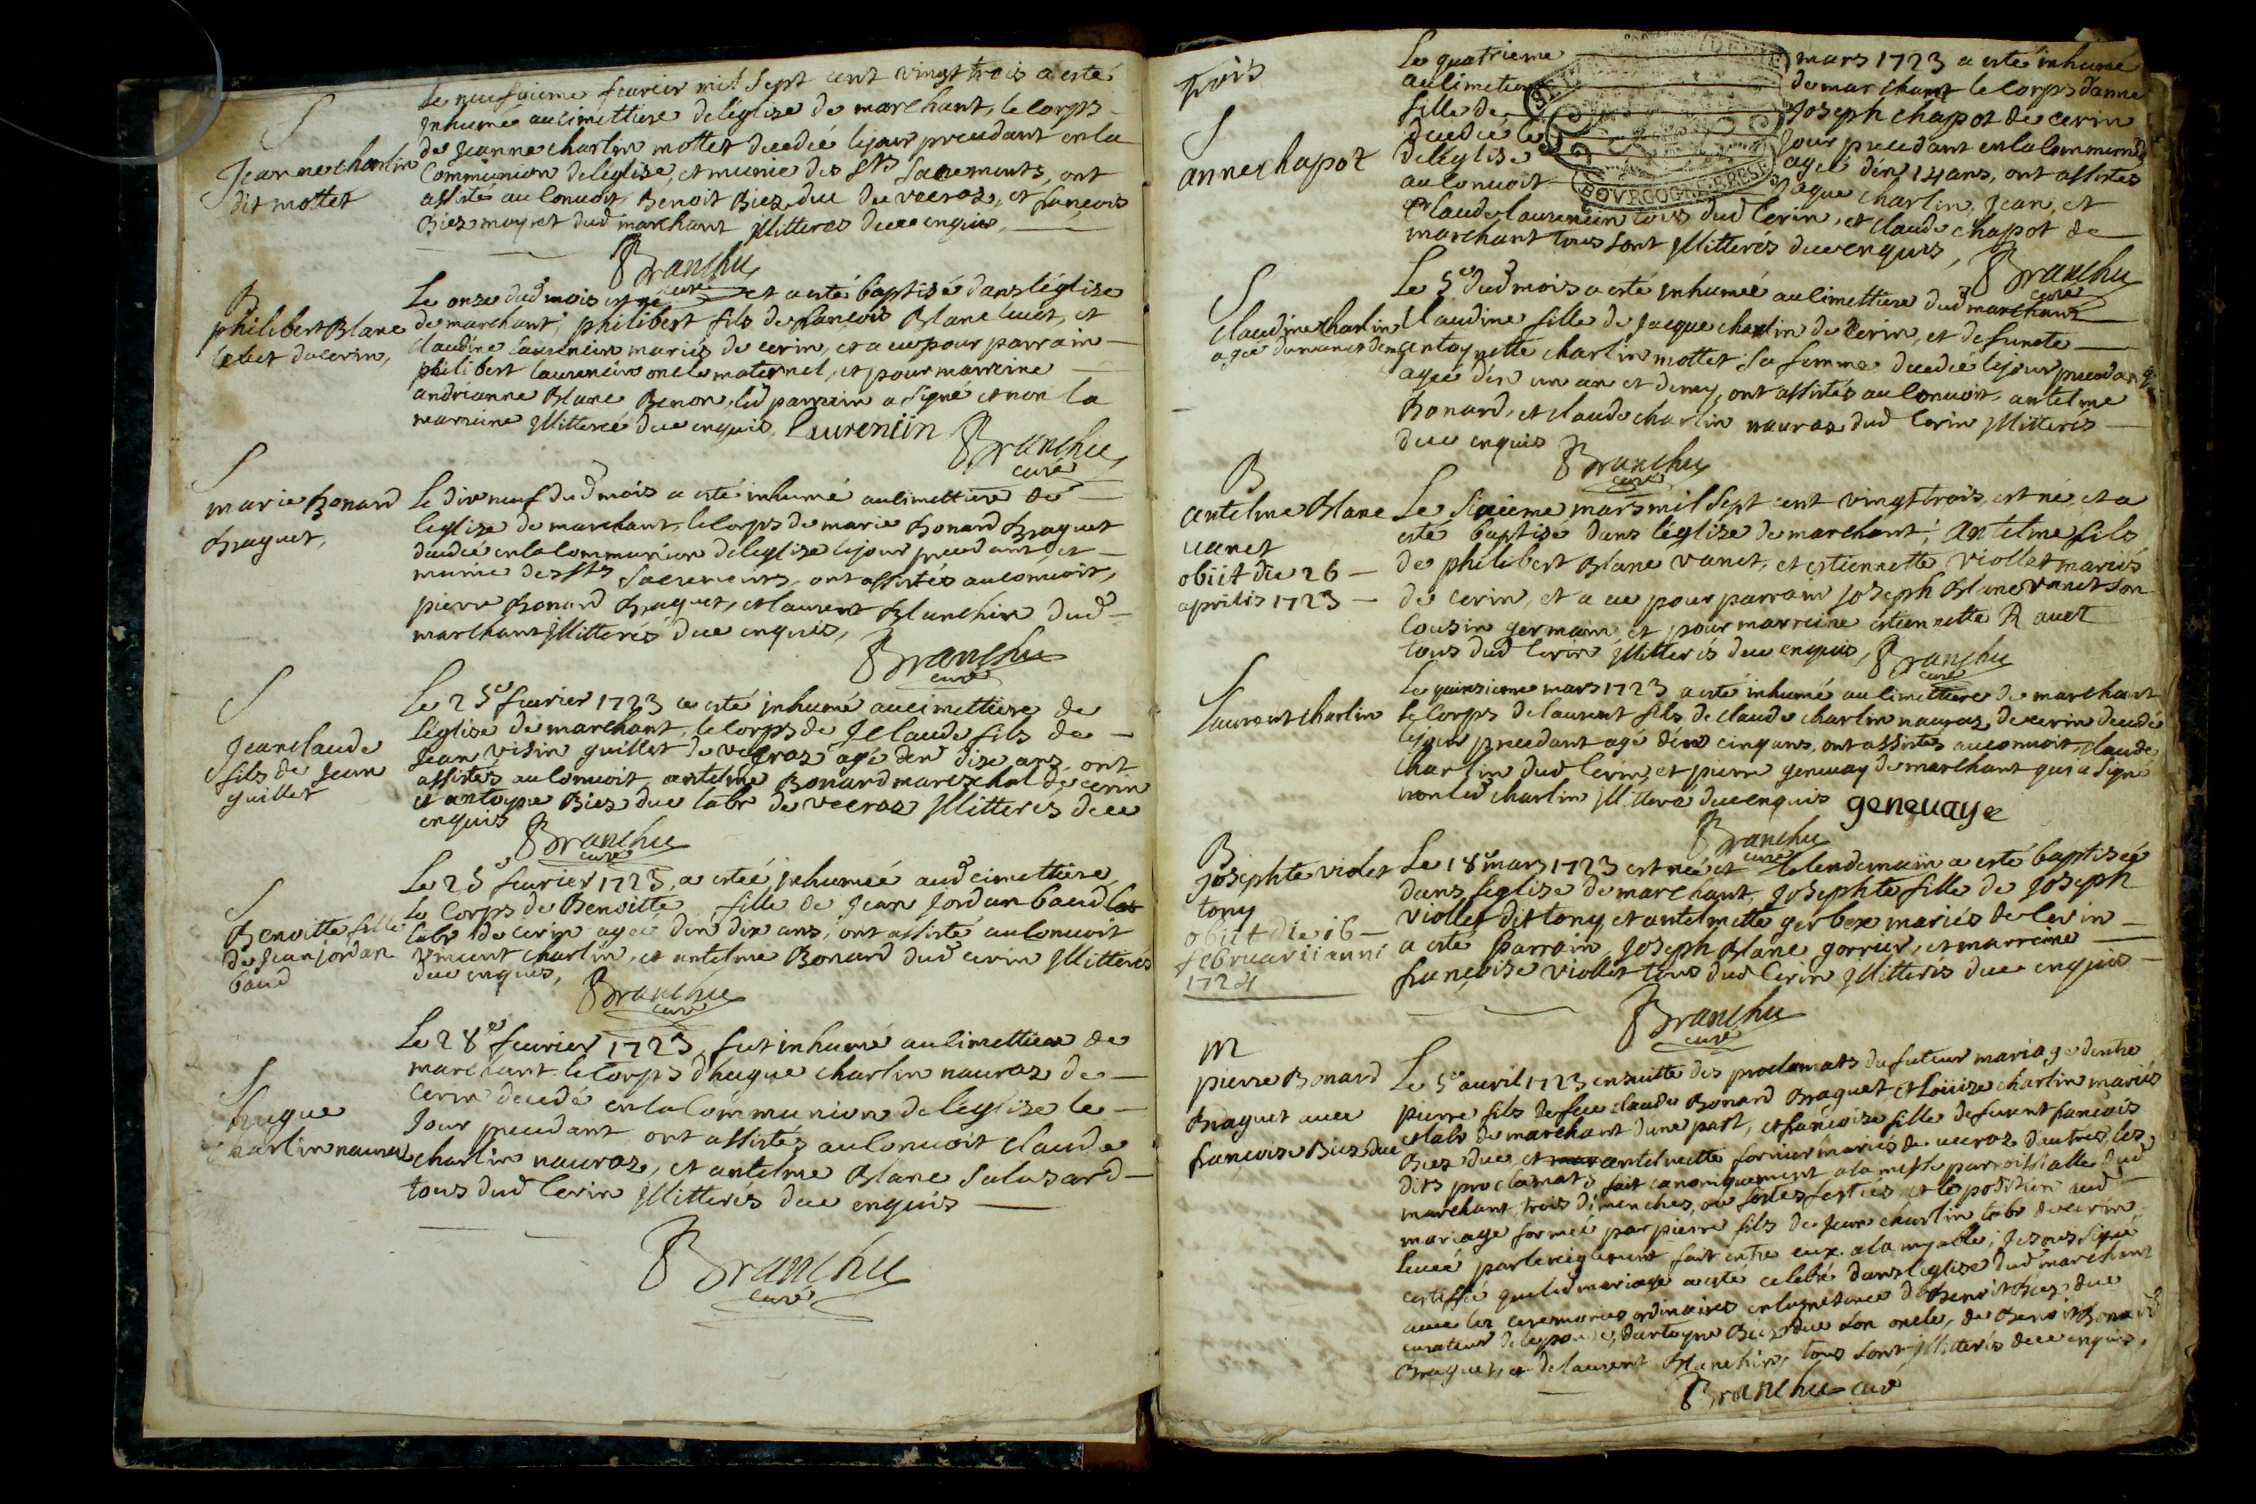 S
Jeanne charlin
dit mottet
Le neufvieme fevrier mil sept cent vingt trois a esté
inhumé au cimettiere de léglise de marchant, le corps
de Jeanne charlin mottet decedée le jour precedant en la
Communion de léglise, et munie des Sts Sacrements, ont
assisté au convoit, Benoit Biez duc de veeroz, et francois
Biez mognet dud marchant Illitteres deue enquis,
Branchu
curé
B
philibert Blanc
Cuet de cerin,
Le onze dud mois est né et a esté baptisé dans léglise
de marchant, philibert fils de francois Blanc cuet, et
claudine laurencin mariés de cerin, et a eu pour parrain
philibert laurencin oncle maternel, et pour marreine
andrianne Blanc Benon, led parrain a signé et non la
marreine Illitterée deue enquis, Laurencin Branchu
curé
S
marie Bonard
Braquet,
Le dix neuf dud mois a esté inhumé au cimettiere de
léglise de marchant, le corps de marie Bonard Braquet
decedée en la Communion de léglise le jour precedant, et
munie des Sts Sacrements, ont assistés au convoit,
pierre Bonard Braquet, et laurent Blanchin dud
marchant Illitterés deue enquis,
Branchu
curé
S
Jean claude
fils de Jean
guillet
Le 25e fevrier 1723 a esté inhumé au cimettiere de
léglise de marchant, le corps de J Claude fils de
Jean visin guillet de veeroz agé den dix ans, ont
assistés au convoit antelme Bonard mareschal de cerin
et antoyne Biez duc labr de veeroz Illitterés deue
enquis
Branchu
curé
S
Benoitte fille
de Jean jordan
baud
Le 25e fevrier 1723, a esteé inhumeé aud cimettiere
le Corps de Benoitte fille de Jean Jordan baud
labr de cerin ageé den dix ans, ont assisté au convoit
vincent charlin, et antelme Bonard dud cerin Illitterés
deue enquis,
Branchu
curé
S
hugue
charlin nauroz
Le 28e fevrier 1723, fut inhumé au cimettiere de
marchant le corps dhugue charlin nauroz de
cerin decedé en la Communion de léglise le
Jour precedant ont assistés au convoit claude
charlin nauroz, et antelme Blanc Salusard
tous dud Cerin Illitterés deue enquis
Branchu
curé
trois
S
anne chapot
Le quatrieme mars 1723 a esté inhumé
au cimetiere de marchant le corps danne
fille de Joseph chapot de cerin
decedée le jour precedant en la Communion
de léglise ageé den 14 ans, ont assistés
au convoit Jaque charlin, Jean, et
claude laurencin tous dud Cerin, et claude chapot de
marchant tous sont Illitterés deue enquis, Branchu
curé
BOVRGOGNE BRESSE
S
Claudine charlin
ageé dun an et demy
Le 5e dud mois a esté inhumé au cimettiere dud marchant
Claudine fille de Jacque charlin de Cerin, et defuncte
antoynette charlin mottet sa femme decedé le jour precedant
ageé den un an et demy, ont assistés au convoit, antelme
Bonard, et claude charlin nauroz dud Cerin Illitterés
deue enquis
Branchu
curé
B
antelme Blanc
vanet
obiit die 26
aprilis 1723
Le Sixieme mars mil sept cent vingt trois, est né, et a
esté baptisé dans léglise de marchant, antelme fils
de philibert Blanc vanet, et estiennette viollet mariés
de cerin, et a eu pour parrain Joseph Blanc vanet son
cousin germain, et pour marreine estiennette Ravet
tous dud Cerin Illitterés deue enquis, Branchu
curé
S
Laurent charlin
Le quinsieme mars 1723 a esté inhumé au cimettiere de marchant
le Corps de laurent fils de claude charlin nauroz de cerin decedé
le jour precedant agé den cinq ans, ont assistés au convoit, claude
charlin dud Cerin, et pierre genevay de marchant qui a signé
non led charlin Illitteré deue enquis genevaye
Branchu
curé
B
Josephte violet
tony
obiit die 16
februarii anni
1724
Le 18e mars 1723 est née et le lendemain a esté baptiseé
dans léglise de marchant, Josephte fille de Joseph
viollet dit tony, et antelmette gerbex mariés de Cerin
a esté parrain Joseph Blanc gorrier, et marreine
francoise viollet tous dud Cerin Illitterés deue enquis
Branchu
curé
m
pierre Bonard
Braquet avec
francoise Biez duc
Le 5e avril 1723 ensuitte des proclamats du futeur mariage dentre
pierre fils de feu claude Bonard Braquet et Loüize charlin mariés
labr de marchant dune part, et francoise fille de furent francois
Biez duc, et antelmette fornier mariés de veeroz dautre, les
dits proclamats fait canoniquement a la messe parroissialle dud
marchant, trois dimenches, ou festes festiés, et loposition aud
mariage formeé par pierre fils de Jean charlin labr de cerin,
leveé par le reglement fait entre eux a la myable, Je soussigné
certiffié que led mariage a esté celebré dans léglise dud marchant
avec les ceremonies ordinaires en la presence de Benoit Biez duc
curateur de lepouse, dantoyne Biez duc son oncle, de Benoit Bonard
Braquet, et de laurent Blanchin, tous sont Illitterés deue enquis,
Branchu curé